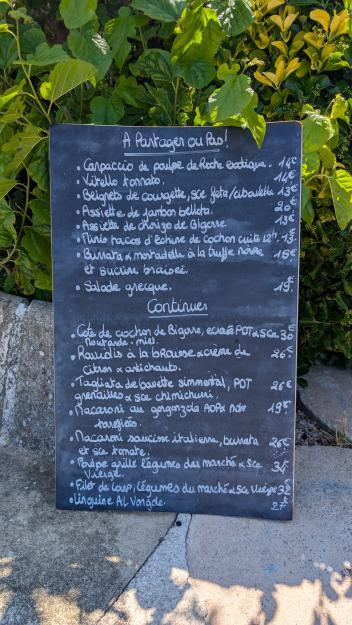 A Partager ou Pas!
• Carpaccio de poulpe de Roche exotique. 14€
• Vitello tonnato. 14€
• Beignets de courgette, sce feta/ciboulette 13€
• Assiette de jambon bellota. 20€
• Assiette de chorizo de Bigorre 13€
• Minis tacos d'échine de cochon cuits 12h. 13.
• Burrata & mortadelle à la truffe noire 16€
et sucrine braisée.
• Salade grecque. 19.
Continuer
• Côte de cochon de Bigorre, écrasé POT & sce 30
moutarde-miel.
• Raviolis à la brousse & crème de 26€
citron & artichauts.
• Tagliata de bavette simmental, POT
grenailles & sce chimichurri.
• Macaroni au gorgonzola AOP & noix 19€
torréfiées.
• Macaroni saucisse italienne, burrata
et sce tomate.
• Poulpe grillé légumes du marché & sce
Vierge.
• Filet de loup, légumes du marché & sce Vierge 32
• Linguine AL Vongole. 27€